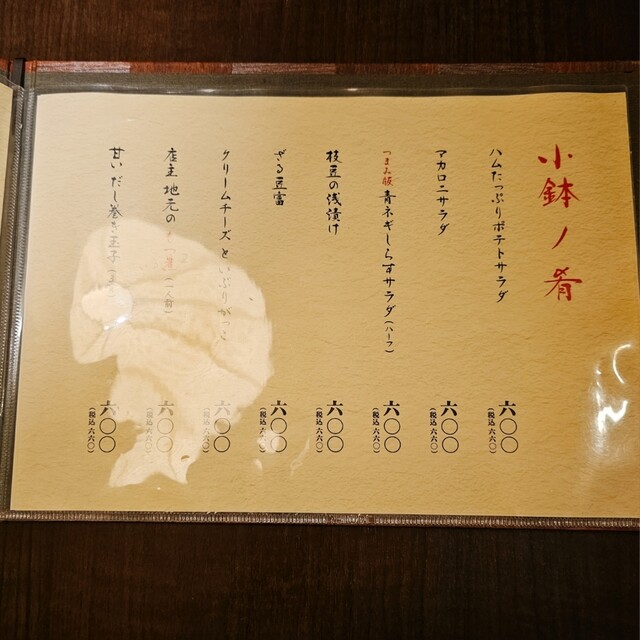 小鉢ノ肴
ハムたっぷりポテトサラダ
六〇〇
(税込 六六〇)
マカロニサラダ
六〇〇
(税込 六六〇)
青ネギしらすサラダ(ハーフ)
六〇〇
(税込 六六〇)
枝豆の浅漬け
六〇〇
(税込 六六〇)
ざる豆富
六〇〇
(税込 六六〇)
クリームチーズといぶりがっこ
六〇〇
(税込 六六〇)
店主 地元の
(一人前)
六〇〇
(税込 六六〇)
甘い だし巻き玉子
六〇〇
(税込 六六〇)